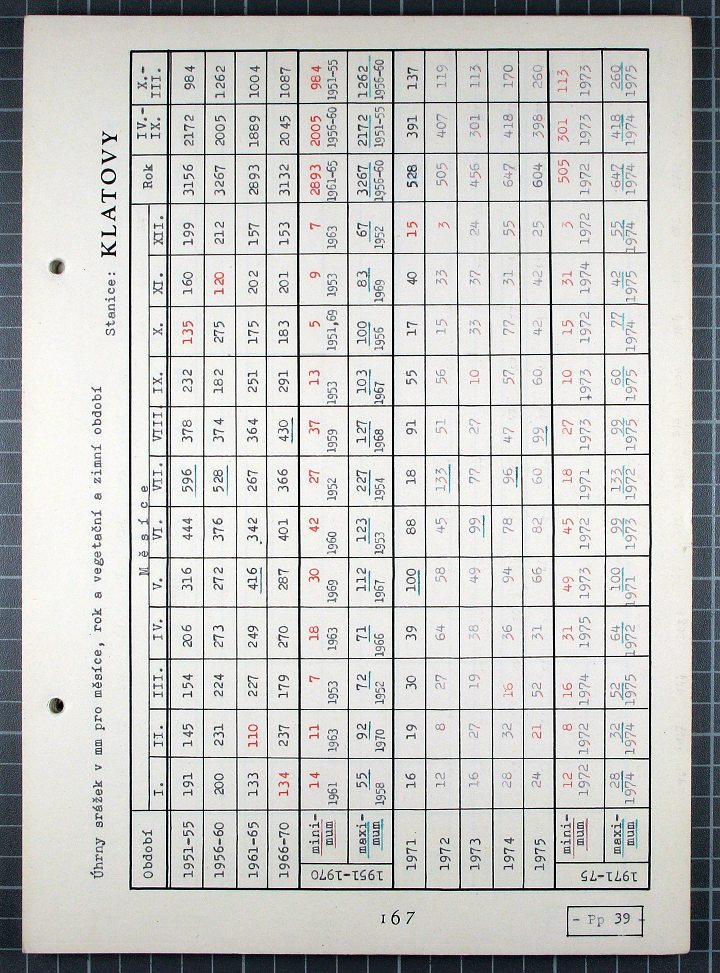 Úhrny srážek v mm pro měsíce, rok a vegetační a zimní období
Stanice: KLATOVY
Období Měsíce Rok IV.-IX. X.-III.
I. II. III. IV. V. VI. VII. VIII. IX. X. XI. XII.
1951-55 191 145 154 206 316 444 596 378 232 135 160 199 3156 2172 984
1956-60 200 231 224 273 272 376 528 374 182 275 120 212 3267 2005 1262
1961-65 133 110 227 249 416 342 267 364 251 175 202 157 2893 1889 1004
1966-70 134 237 179 270 287 401 366 430 291 183 201 153 3132 2045 1087
1951-1970
mini-mum 14 11 7 18 30 42 27 37 13 5 9 7 2893 2005 984
1961 1963 1953 1963 1969 1960 1952 1959 1953 1951,69 1953 1963 1961-65 1956-60 1951-55
maxi-mum 55 92 72 71 112 123 227 127 103 100 83 67 3267 2172 1262
1958 1970 1952 1966 1967 1953 1954 1968 1967 1956 1969 1952 1956-60 1951-55 1956-60
1971 16 19 30 39 100 88 18 91 55 17 40 15 528 391 137
1972 12 8 27 64 58 45 133 51 56 15 33 3 505 407 119
1973 16 27 19 38 49 99 77 27 10 33 37 24 456 301 113
1974 28 32 16 36 94 78 96 47 57 77 31 55 647 418 170
1975 24 21 52 31 66 82 60 99 60 42 42 25 604 398 260
1971-75
mini-mum 12 8 16 31 49 45 18 27 10 15 31 3 505 301 113
1972 1972 1974 1975 1973 1972 1971 1973 1973 1972 1974 1972 1972 1973 1973
maxi-mum 28 32 52 64 100 99 133 99 60 77 42 55 647 418 260
1974 1974 1975 1972 1971 1973 1972 1975 1975 1974 1975 1974 1974 1974 1975
167
- Pp 39 -